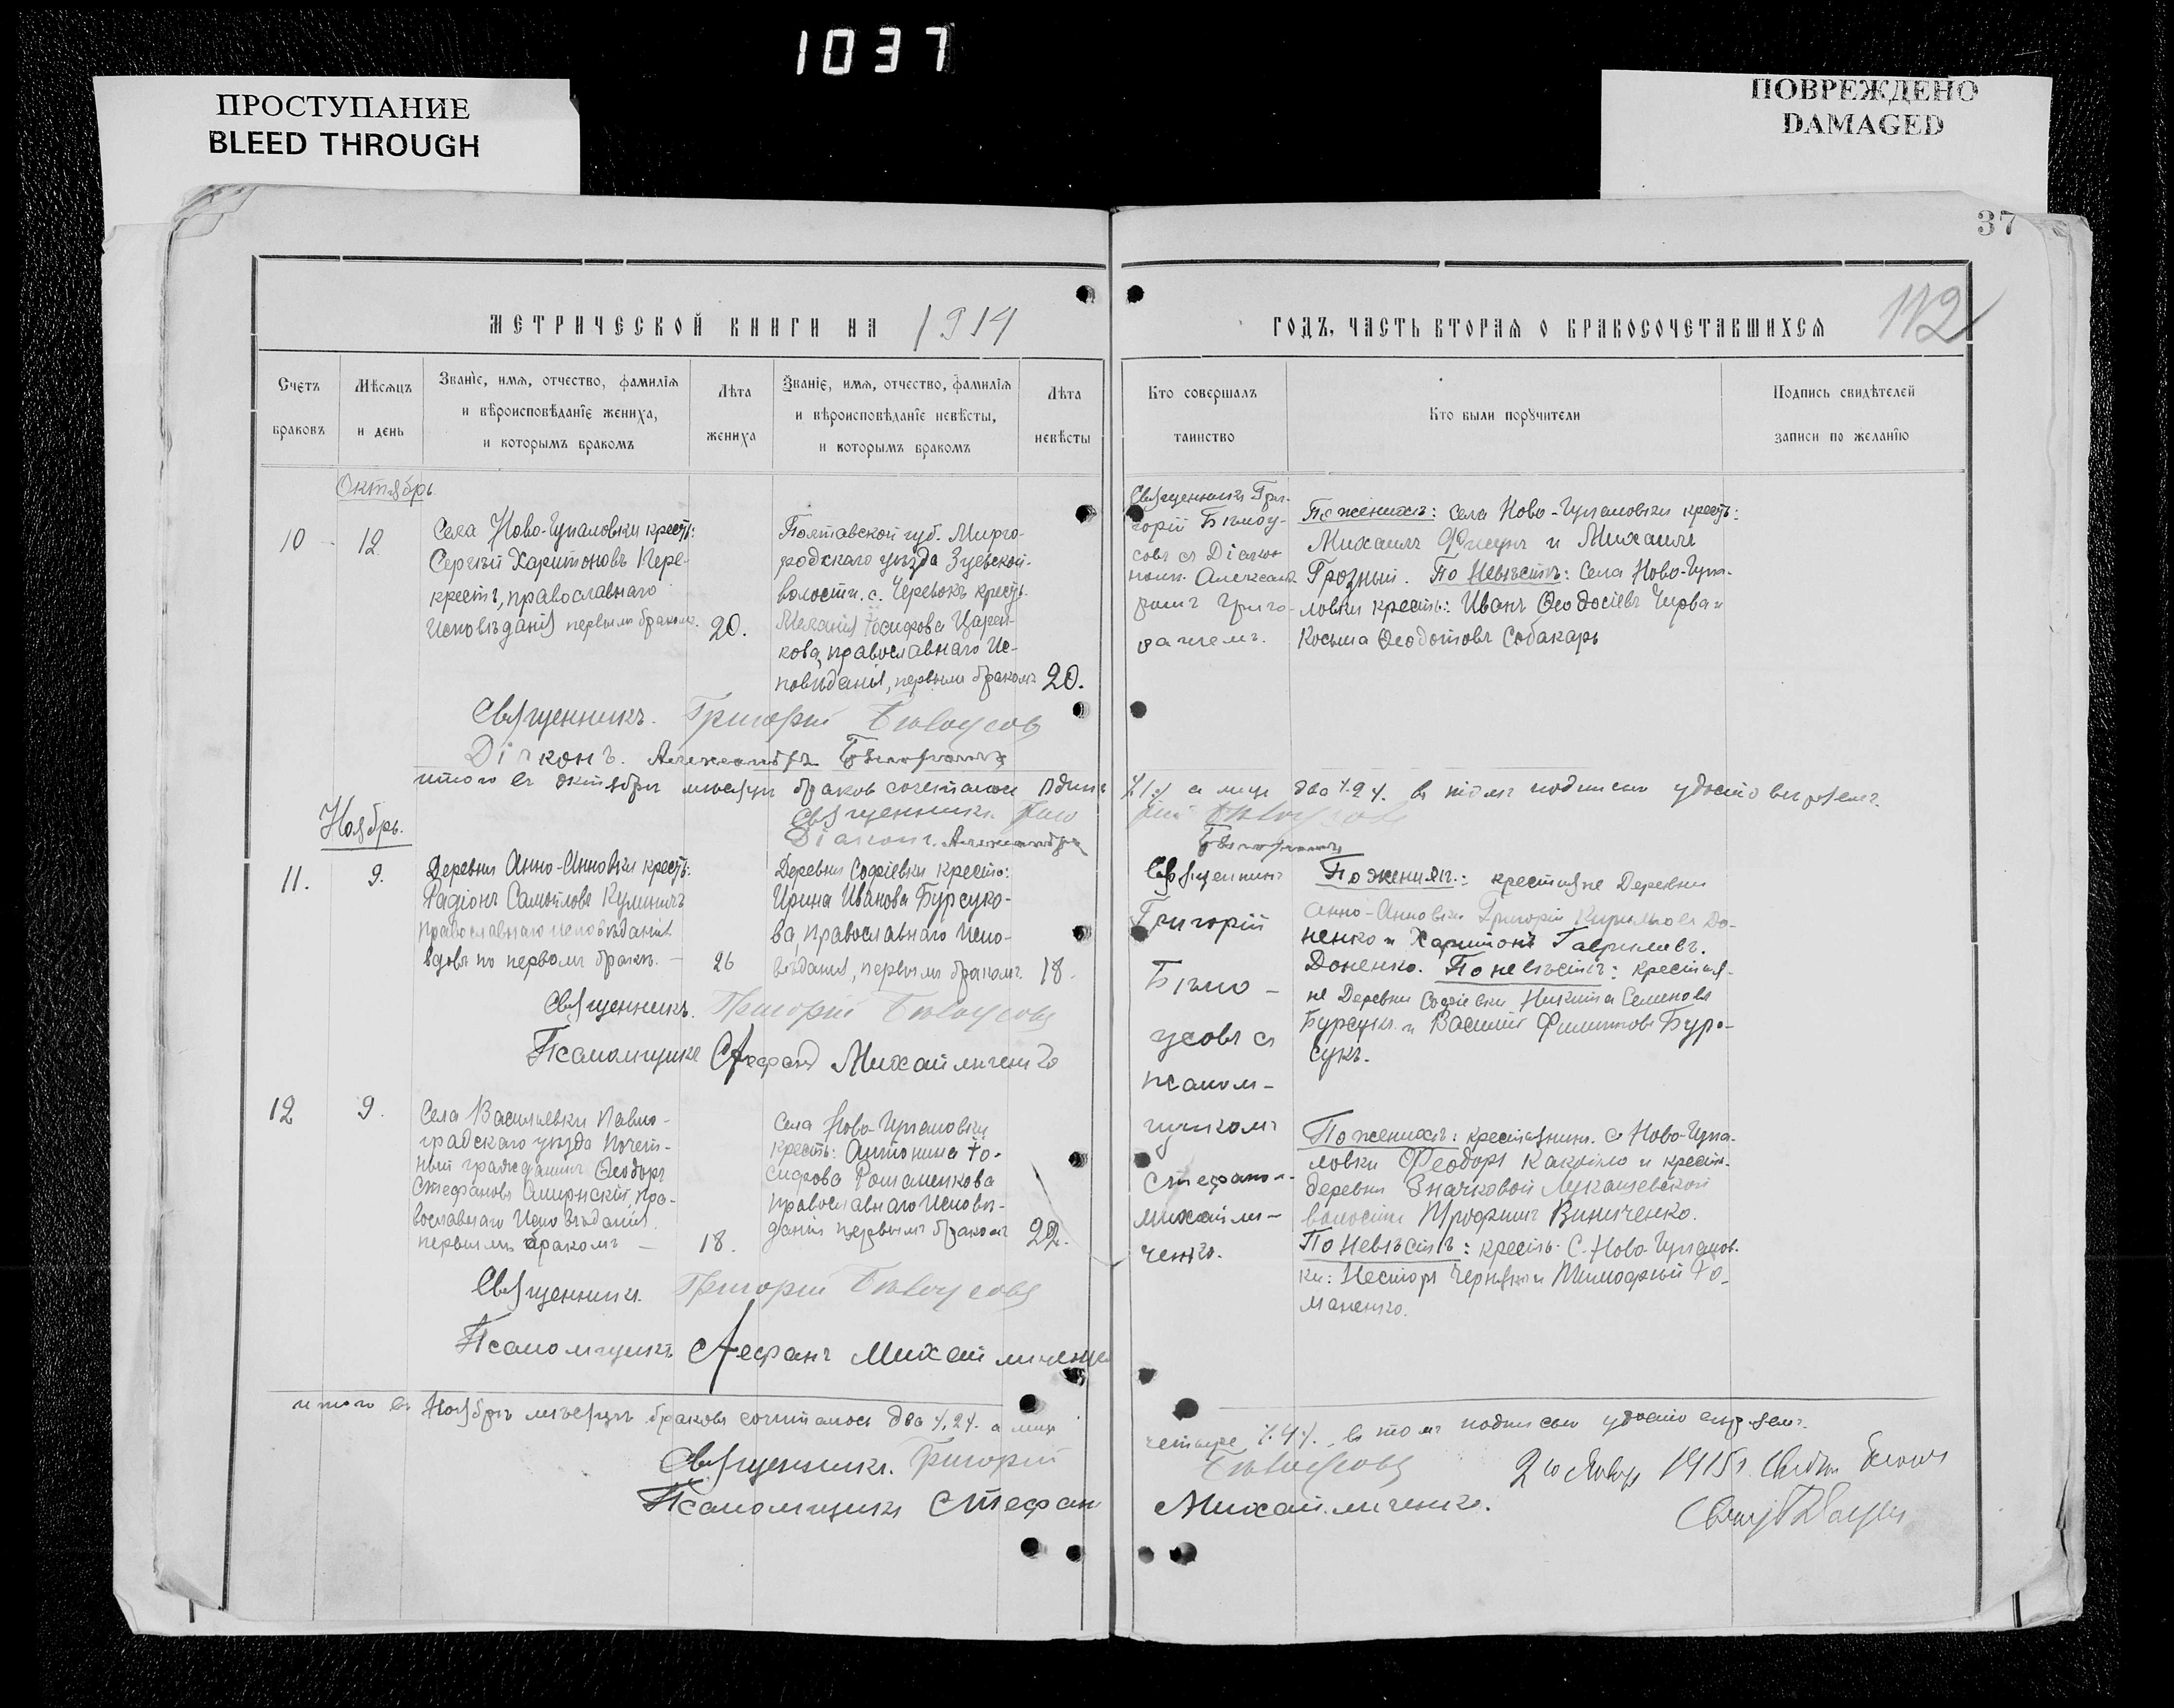 1037
ПРОСТУПАНИЕ
BLEED THROUGH
ПОВРЕЖДЕНО
DAMAGED
37
112
МЕТРИЧЕСКОЙ КНИГИ НА 1914
ГОДЪ, ЧАСТЬ ВТОРАЯ О БРАКОСОЧЕТАВШИХСЯ
Счетъ
браковъ
Мѣсяцъ
и день
Званіе, имя, отчество, фамилія
и вѣроисповѣданіе жениха,
и которымъ бракомъ
Лѣта
жениха
Званіе, имя, отчество, фамилія
и вѣроисповѣданіе невѣсты,
и которымъ бракомъ
Лѣта
невѣсты
Кто совершалъ
таинство
Кто были поручители
Подпись свидѣтелей
записи по желанію
Октябрь
10
12
Села Ново-Гупаловки крест:
Сергѣй Харитоновъ Пере-
крестъ, православнаго
исповѣданія первымъ бракомъ.
20.
Полтавской губ. Мирго-
родскаго уѣзда Зуевской
волости. с. Черевокъ крест.
Меланія Іосифова Царен-
кова, православнаго Ис-
повѣданія, первымъ бракомъ
20.
Священникъ Гри-
горій Бѣлоу-
совъ съ Діако-
номъ Александ-
ромъ
По женихѣ: села Ново-Гупаловки крест:
Михаилъ и Михаилъ
Грозный. По Невѣстѣ: села Ново-Гупа-
ловки крест: Иванъ Ѳеодосіевъ Чирва и
Косьма Ѳеодотовъ Собакарь
Священникъ. Григорій Бѣлоусовъ
Діаконъ. Александръ
итого въ октябрѣ мѣсяцѣ браковъ сочеталось одинъ
/.1./ а лицъ два /.2./. въ томъ подписью удостовѣряемъ.
Священникъ Григо
рій Бѣлоусовъ
Діаконъ. Александръ
Ноябрь.
11.
9.
Деревни Анно-Анновки крест:
Радіонъ Самойловъ Кулиничъ
православнаго исповѣданія
вдовъ по первомъ бракѣ. —
26
Деревни Софіевки крест:
Ирина Иванова Бурсуко-
ва православнаго испо-
вѣданія, первымъ бракомъ.
18.
Священникъ
Григорій
Бѣло-
усовъ съ
псалом-
щикомъ
Стефаномъ
Михайли-
ченко.
По женихѣ: крестьяне Деревни
Анно-Анновки Григорій Кирилловъ До-
ненко и Харитонъ Гавриловъ.
Доненко. По невѣстѣ: крестья-
не Деревни Софіевки Никита Семеновъ
Бурсукъ и Василій Филиповъ Бур-
сукъ.
Священникъ. Григорій Бѣлоусовъ
Псаломщикъ Стефанъ Михайличенко
12
9.
Села Васильевки Павло-
градскаго уѣзда Почет-
ный гражданинъ Ѳеодоръ
Стефановъ Смирнскій, пра-
вославнаго исповѣданія.
первымъ бракомъ —
18.
Села Ново-Гупаловки
крест: Антонина Іо-
сифова Романенкова
православнаго исповѣ-
данія первымъ бракомъ
22.
По женихѣ: крестьянинъ. с Ново-Гупа-
ловки Феодоръ и крест.
деревни Значковой Лукашевской
волости Трофимъ Виниченко.
По Невѣстѣ: крест. с. Ново-Гупалов-
ки: Несторъ и Тимофѣй Ро-
маненко.
Священникъ. Григорій Бѣлоусовъ
Псаломщикъ Стефанъ Михайличенко
итого въ Ноябрѣ мѣсяцѣ браковъ сочеталось два /.2./. а лицъ
четыре /.4./. въ томъ подписью удостовѣряемъ.
Священникъ. Григорій
Бѣлоусовъ
Псаломщикъ Стефанъ
Михайличенко.
2 1915 г.